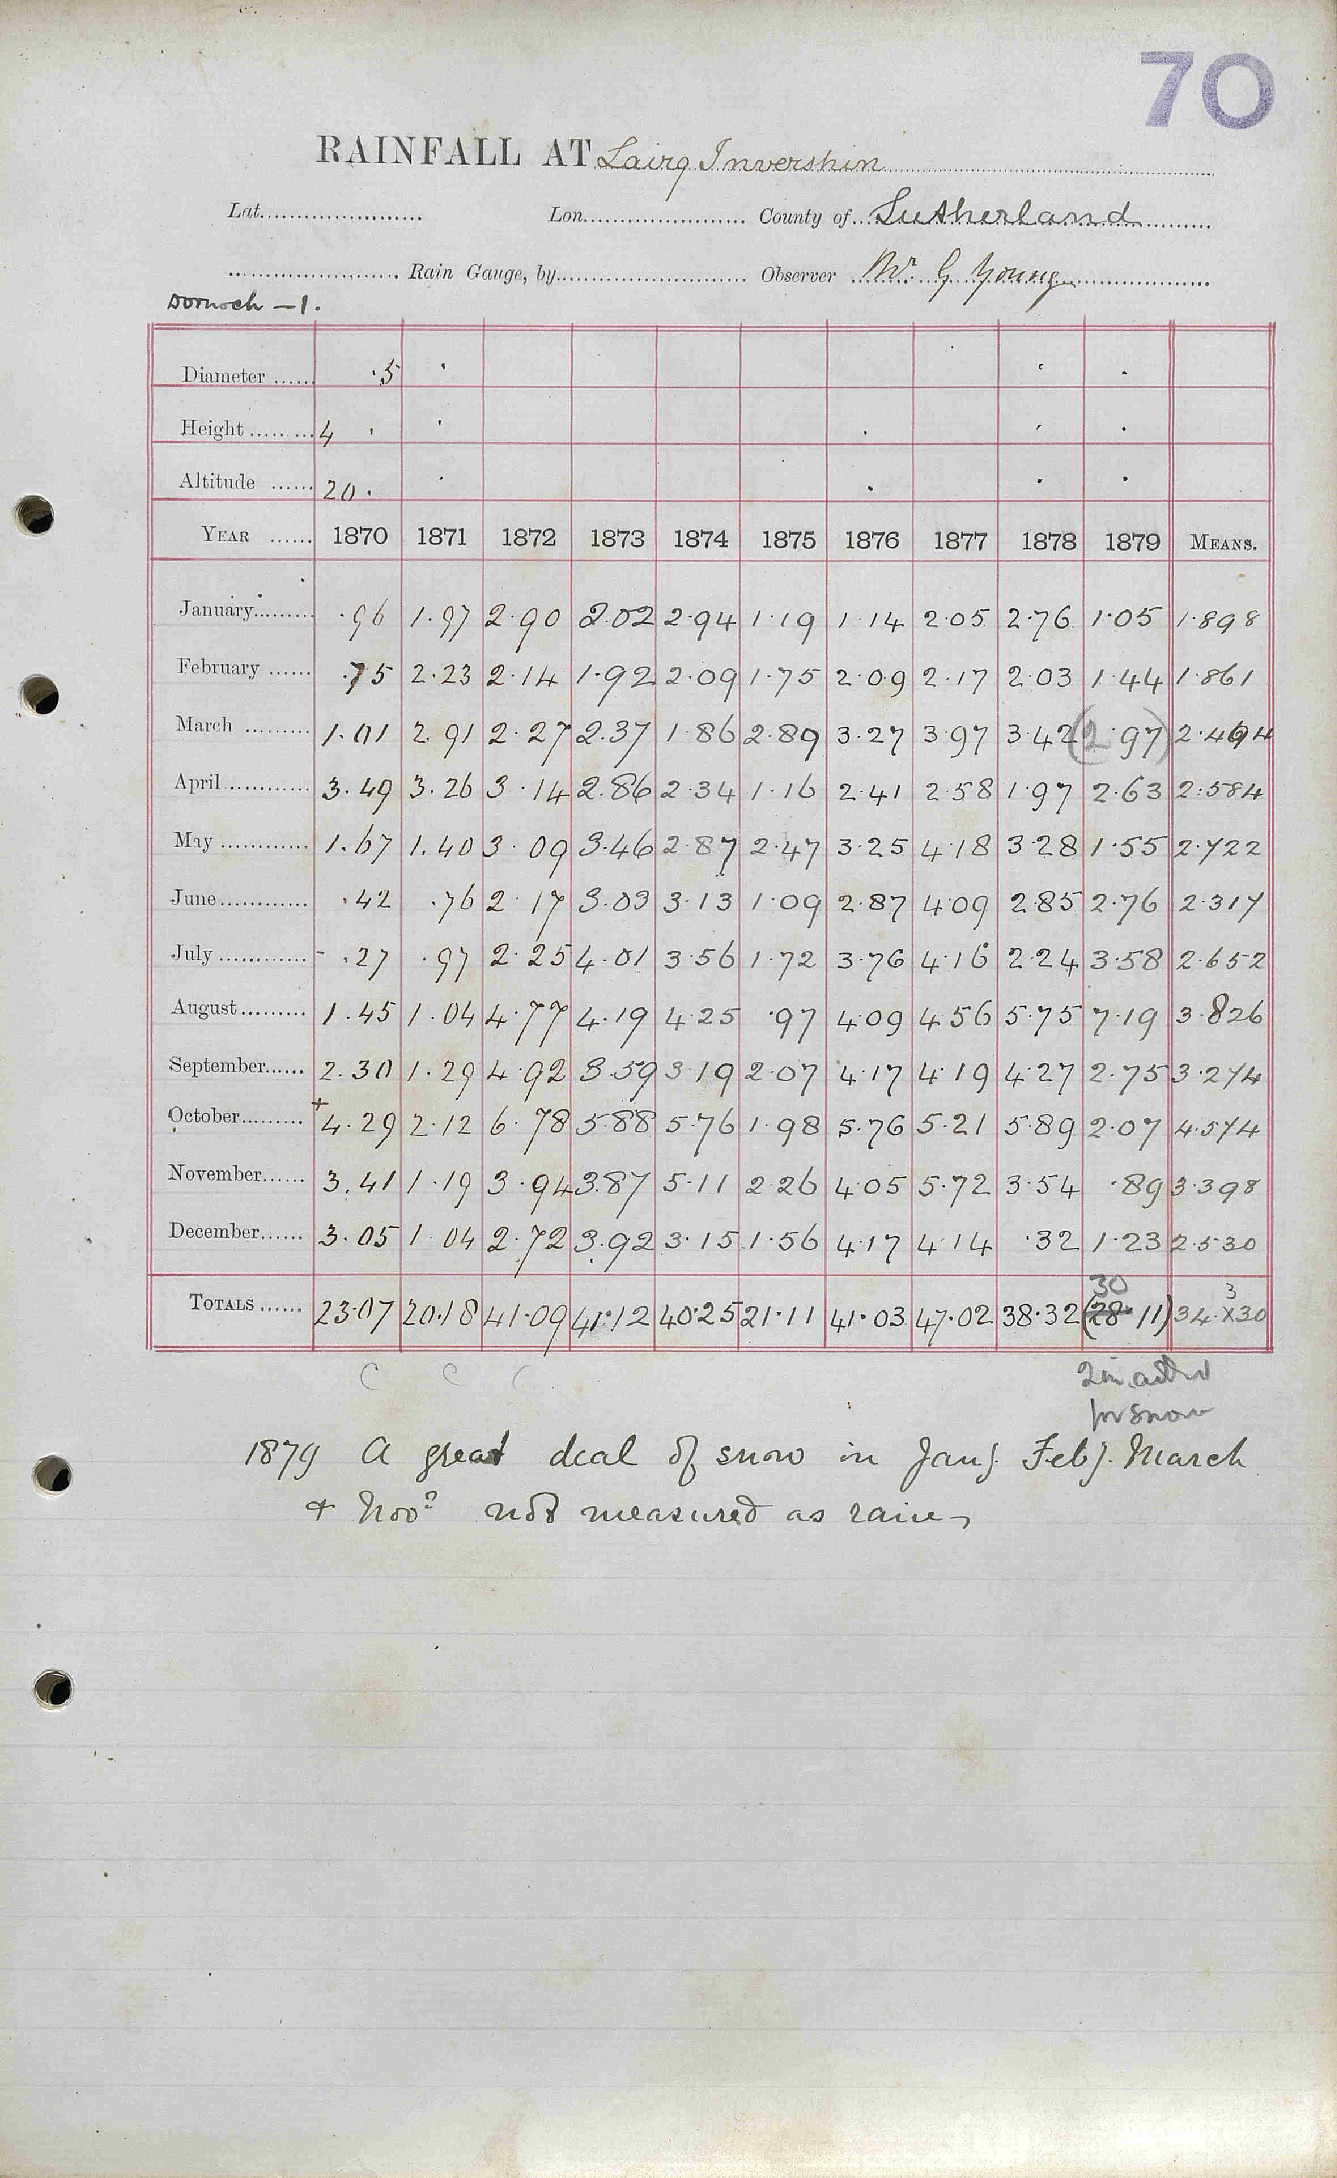 70
RAINFALL AT Lairg Invershin
Lat. Lon. County of Sutherland
Rain Gauge, by Observer Mr G Young
Dornoch — 1.
Diameter .5
Height 4
Altitude 20.
YEAR 1870 1871 1872 1873 1874 1875 1876 1877 1878 1879 MEANS.
January .96 1.97 2.90 2.02 2.94 1.19 1.14 2.05 2.76 1.05 1.898
February .75 2.23 2.14 1.92 2.09 1.75 2.09 2.17 2.03 1.44 1.861
March 1.01 2.91 2.27 2.37 1.86 2.89 3.27 3.97 3.42 (2.97) 2.494
April 3.49 3.26 3.14 2.86 2.34 1.16 2.41 2.58 1.97 2.63 2.584
May 1.67 1.40 3.09 3.46 2.87 2.47 3.25 4.18 3.28 1.55 2.722
June .42 .76 2.17 3.03 3.13 1.09 2.87 4.09 2.85 2.76 2.317
July .27 .97 2.25 4.01 3.56 1.72 3.76 4.16 2.24 3.58 2.652
August 1.45 1.04 4.77 4.19 4.25 .97 4.09 4.56 5.75 7.19 3.826
September 2.30 1.29 4.92 3.59 3.19 2.07 4.17 4.19 4.27 2.75 3.274
October +4.29 2.12 6.78 5.88 5.76 1.98 5.76 5.21 5.89 2.07 4.574
November 3.41 1.19 3.94 3.87 5.11 2.26 4.05 5.72 3.54 .89 3.398
December 3.05 1.04 2.72 3.92 3.15 1.56 4.17 4.14 .32 1.23 2.530
30 3
TOTALS 23.07 20.18 41.09 41.12 40.25 21.11 41.03 47.02 38.32 (28.11) 34.x30
C C C
2 in. added
for snow
1879 A great deal of snow in Jany. Feby. March
& Novr not measured as rain